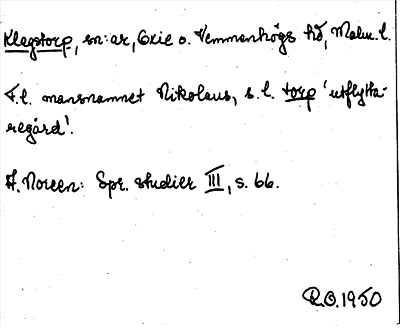 Klagstorp, sn:ar, Oxie o. Vemmenhögs hd, Malm. l.
F.l. mansnamnet Nikolaus, s.l. torp 'utflytta-
regård'.
A. Noreen: Spr. studier III, s. 66.
R.O. 1950